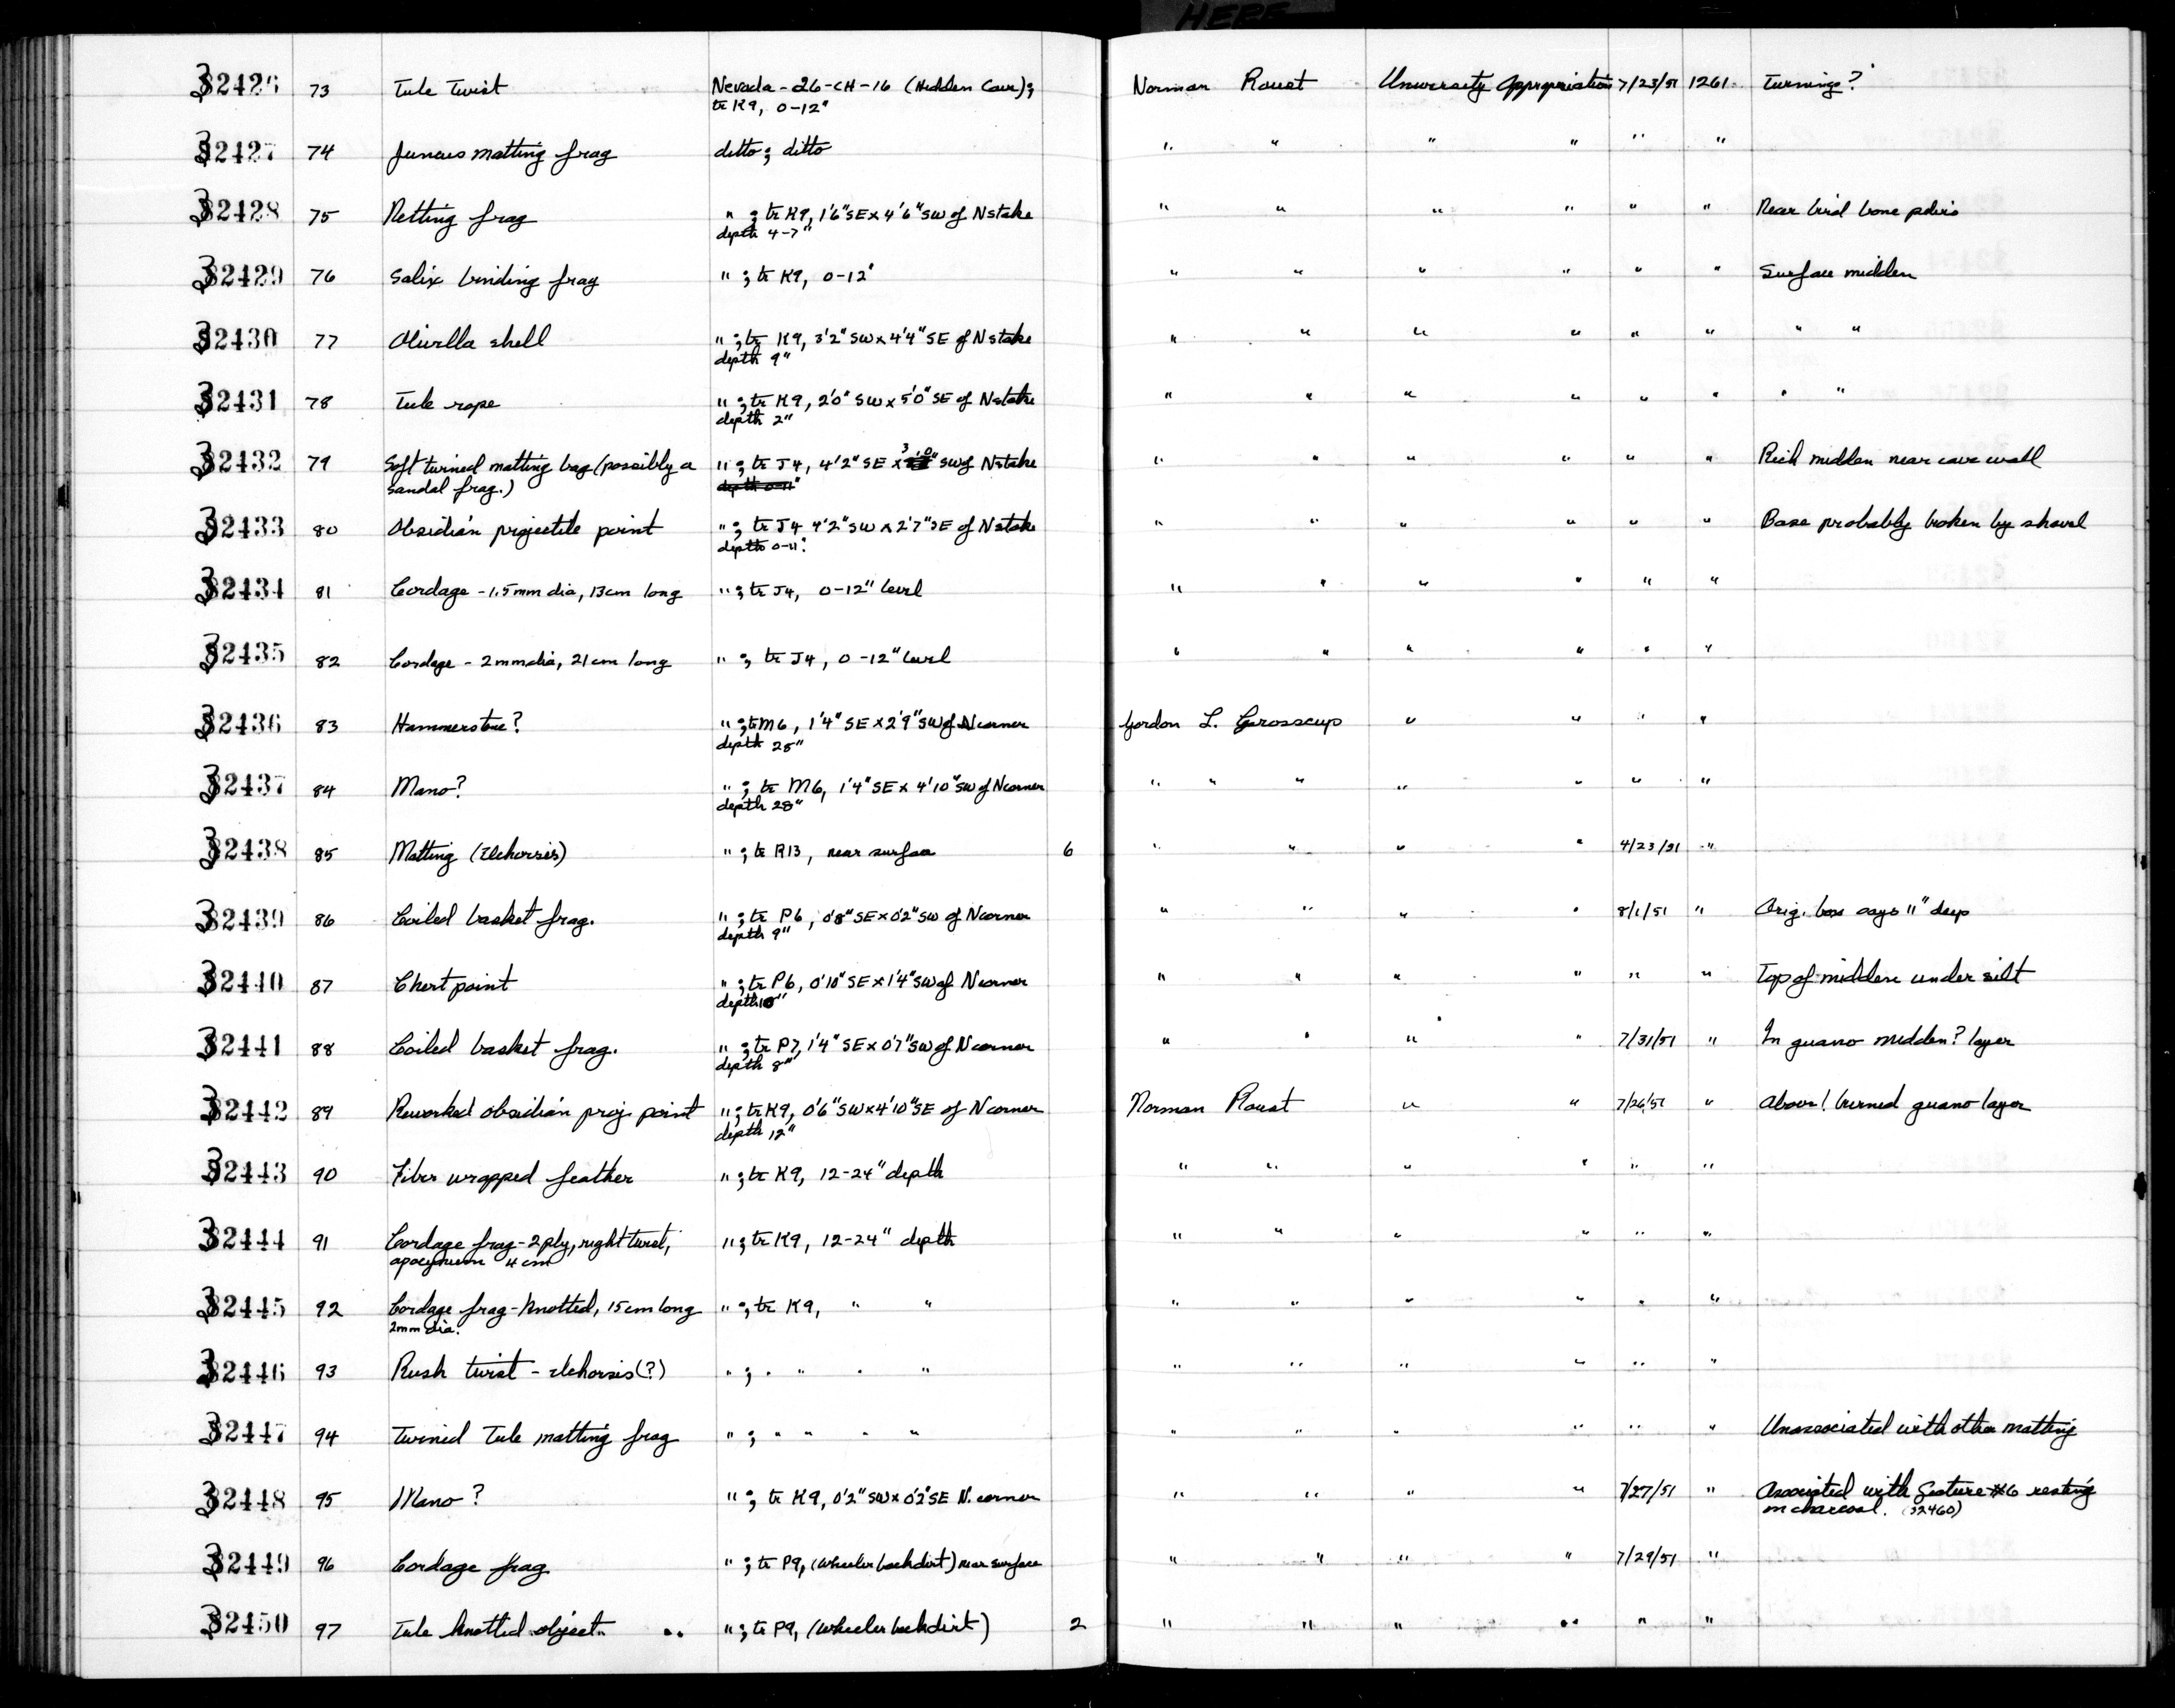 HERE
32426 73 Tule Twist Nevada-26-CH-16 (Hidden Cave); Norman Roust University Appropriation 7/23/51 1261 Turnings?
tr K9, 0-12"
32427 74 Juncus matting frag ditto; ditto " " " " " "
32428 75 Netting frag " ; tr K9, 1'6" SE x 4'6" SW of N stake " " " " " " Near bird bone pelvis
depth 4-7"
32429 76 Salix binding frag " ; tr K9, 0-12" " " " " " " Surface midden
32430 77 Olivella shell " ; tr K9, 3'2" SW x 4'4" SE of N stake " " " " " " " "
depth 9"
32431 78 Tule rope " ; tr K9, 2'0" SW x 5'0" SE of N stake " " " " " " " "
depth 2"
32432 79 Soft twined matting bag (possibly a " ; tr J4, 4'2" SE x 3'0" SW of N stake " " " " " " Rich midden near cave wall
sandal frag.) depth 0-11"
32433 80 Obsidian projectile point " ; tr J4 4'2" SW x 2'7" SE of N stake " " " " " " Base probably broken by shovel
depth 0-11"
32434 81 Cordage - 1.5mm dia, 13cm long " ; tr J4, 0-12" level " " " " " "
32435 82 Cordage - 2mm dia, 21cm long " ; tr J4, 0-12" level " " " " " "
32436 83 Hammerstone? " ; tr M6, 1'4" SE x 2'9" SW of N corner Gordon L. Grosscup " " " "
depth 28"
32437 84 Mano? " ; tr M6, 1'4" SE x 4'10" SW of N corner " " " " " " "
depth 28"
32438 85 Matting (Elehorsis) " ; tr R13, near surface 6 " " " " 4/23/51 "
32439 86 Coiled basket frag. " ; tr P6, 0'8" SE x 0'2" SW of N corner " " " " 8/1/51 " Orig. box says 11" deep
depth 9"
32440 87 Chert point " ; tr P6, 0'10" SE x 1'4" SW of N corner " " " " " " Top of midden under silt
depth 10"
32441 88 Coiled basket frag. " ; tr P7, 1'4" SE x 0'7" SW of N corner " " " " 7/31/51 " In guano midden? layer
depth 8"
32442 89 Reworked obsidian proj. point " ; tr K9, 0'6" SW x 4'10" SE of N corner Norman Roust " " 7/26/51 " Above! burned guano layer
depth 12"
32443 90 Fiber wrapped feather " ; tr K9, 12-24" depth " " " " " "
32444 91 Cordage frag - 2 ply, right twist, " ; tr K9, 12-24" depth " " " " " "
apocynum 4 cm
32445 92 Cordage frag - knotted, 15cm long " ; tr K9, " " " " " " " "
2mm dia.
32446 93 Rush twist - elehorsis (?) " ; " " " " " " " " " "
32447 94 Twined Tule matting frag " ; " " " " " " " " " " Unassociated with other matting
32448 95 Mano? " ; tr K9, 0'2" SW x 0'2" SE N. corner " " " " 7/27/51 " Associated with feature #6 resting
in charcoal. (32460)
32449 96 Cordage frag. " ; tr P9, (Wheeler backdirt) near surface " " " " 7/29/51 "
32450 97 Tule knotted object. " ; tr P9, (Wheeler backdirt) 2 " " " " " "